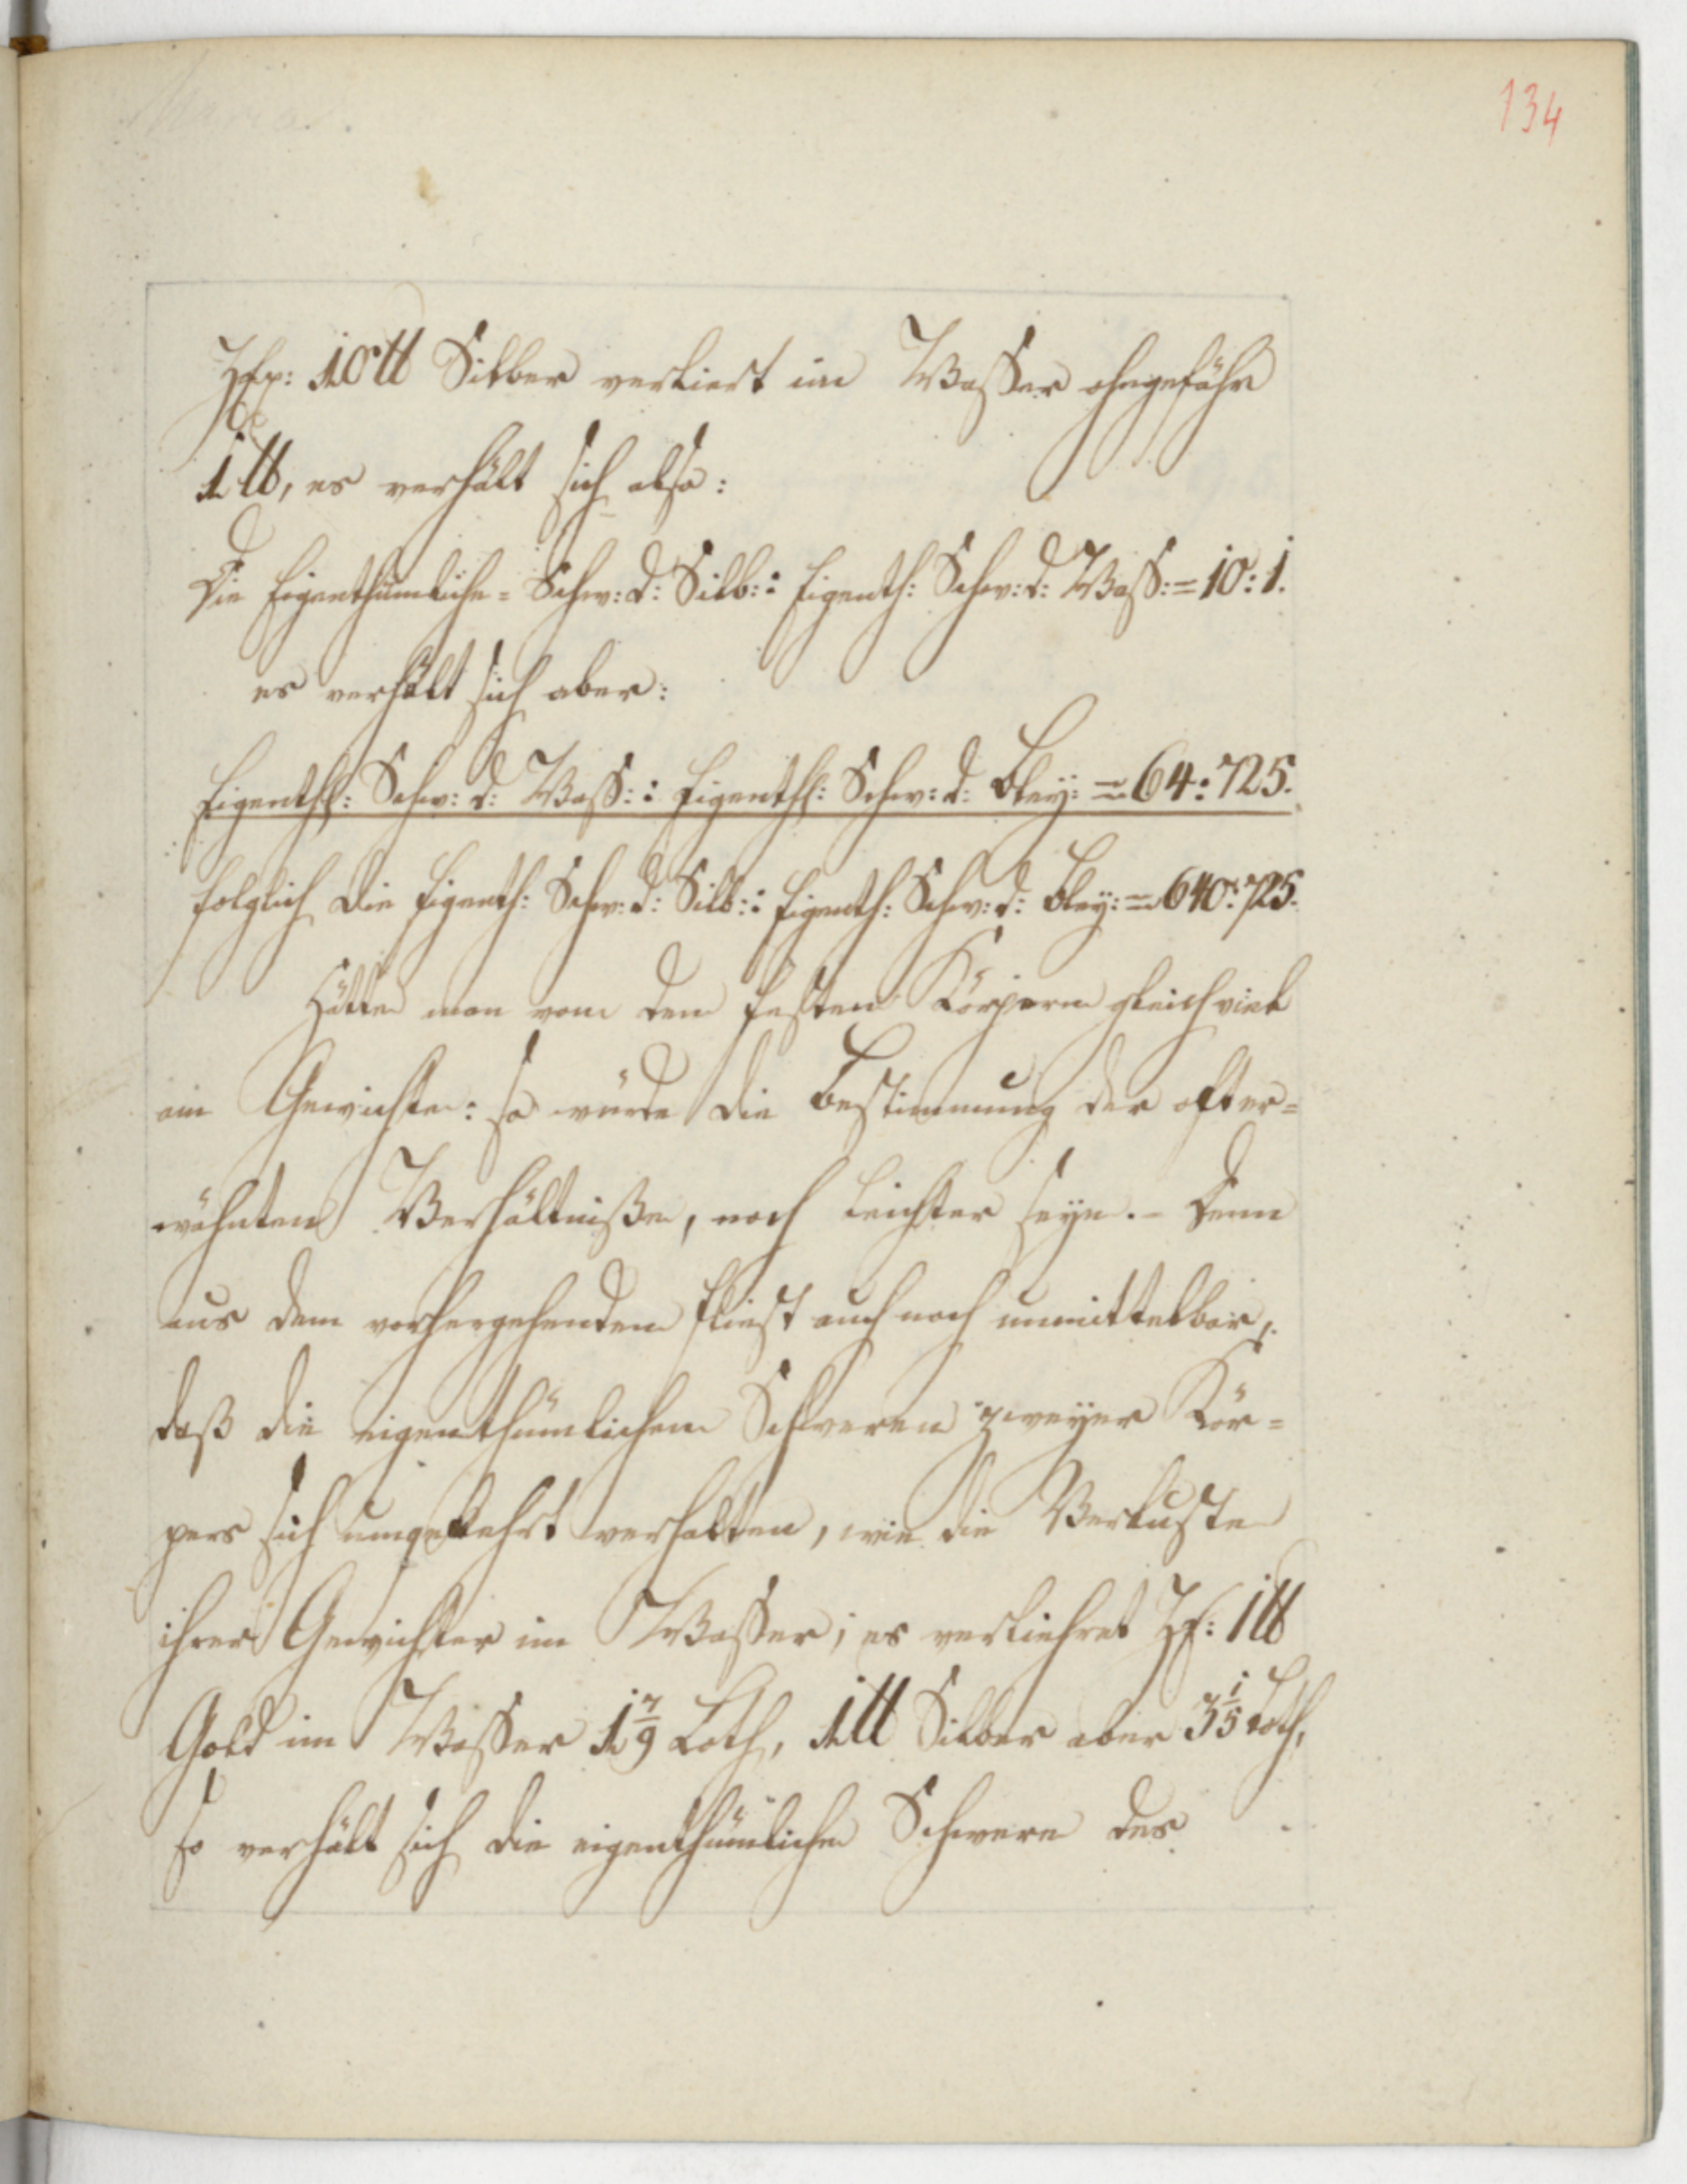 134
Zex: 10 ℔ Silber verliert im Wasser ohngefähr
1 ℔, es verhält sich also:
Die Eigenthümliche = Schw: d: Silb: : Eigenth: Schw: d: Wass: = 10 : 1.
es verhält sich aber:
Eigenthl: Schw: d: Wass: : Eigenthl: Schw: d: Bley: = 64 : 725.
folglich die Eigenth: Schw: d: Silb: : Eigenth: Schw: d: Bley: = 640 : 725.
Hätte man von den festen Körpern gleichviel
am Gewichte: so würde die Bestimmung der ofter=
wähnten Verhältniße, noch leichter seyn. – Denn
aus dem vorhergehenden fliest auch noch unmittelbar,
daß die eigenthümlichen Schweren zweyer Kör=
pers sich umgekehrt verhalten, wie die Verluste
ihrer Gewichter im Wasser; es verliehret Ze: 1 ℔
Gold im Wasser 1 7/9 Loth, 1 ℔ Silber aber 3 1/5 Loth,
so verhält sich die eigenthümliche Schwere des